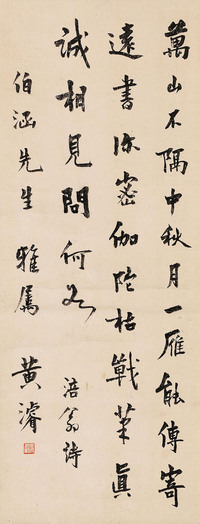 萬山不隔中秋月一雁能傳寄
遠書深密伽陀枯戰筆真
誠相見問何如 涪翁詩
伯涵先生雅屬 黃濬